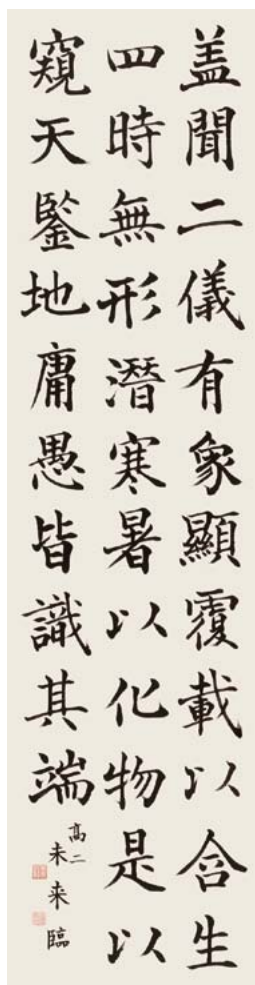 盖聞二儀有象顯覆載以含生
四時無形潛寒暑以化物是以
窺天鑒地庸愚皆識其端
高二
未来臨